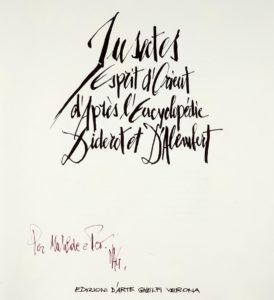 Insectes
Esprit d'Orient
d'Après l'Encyclopédie
Diderot et D'Alembert
Per
EDIZIONI D'ARTE GHELFI VERONA